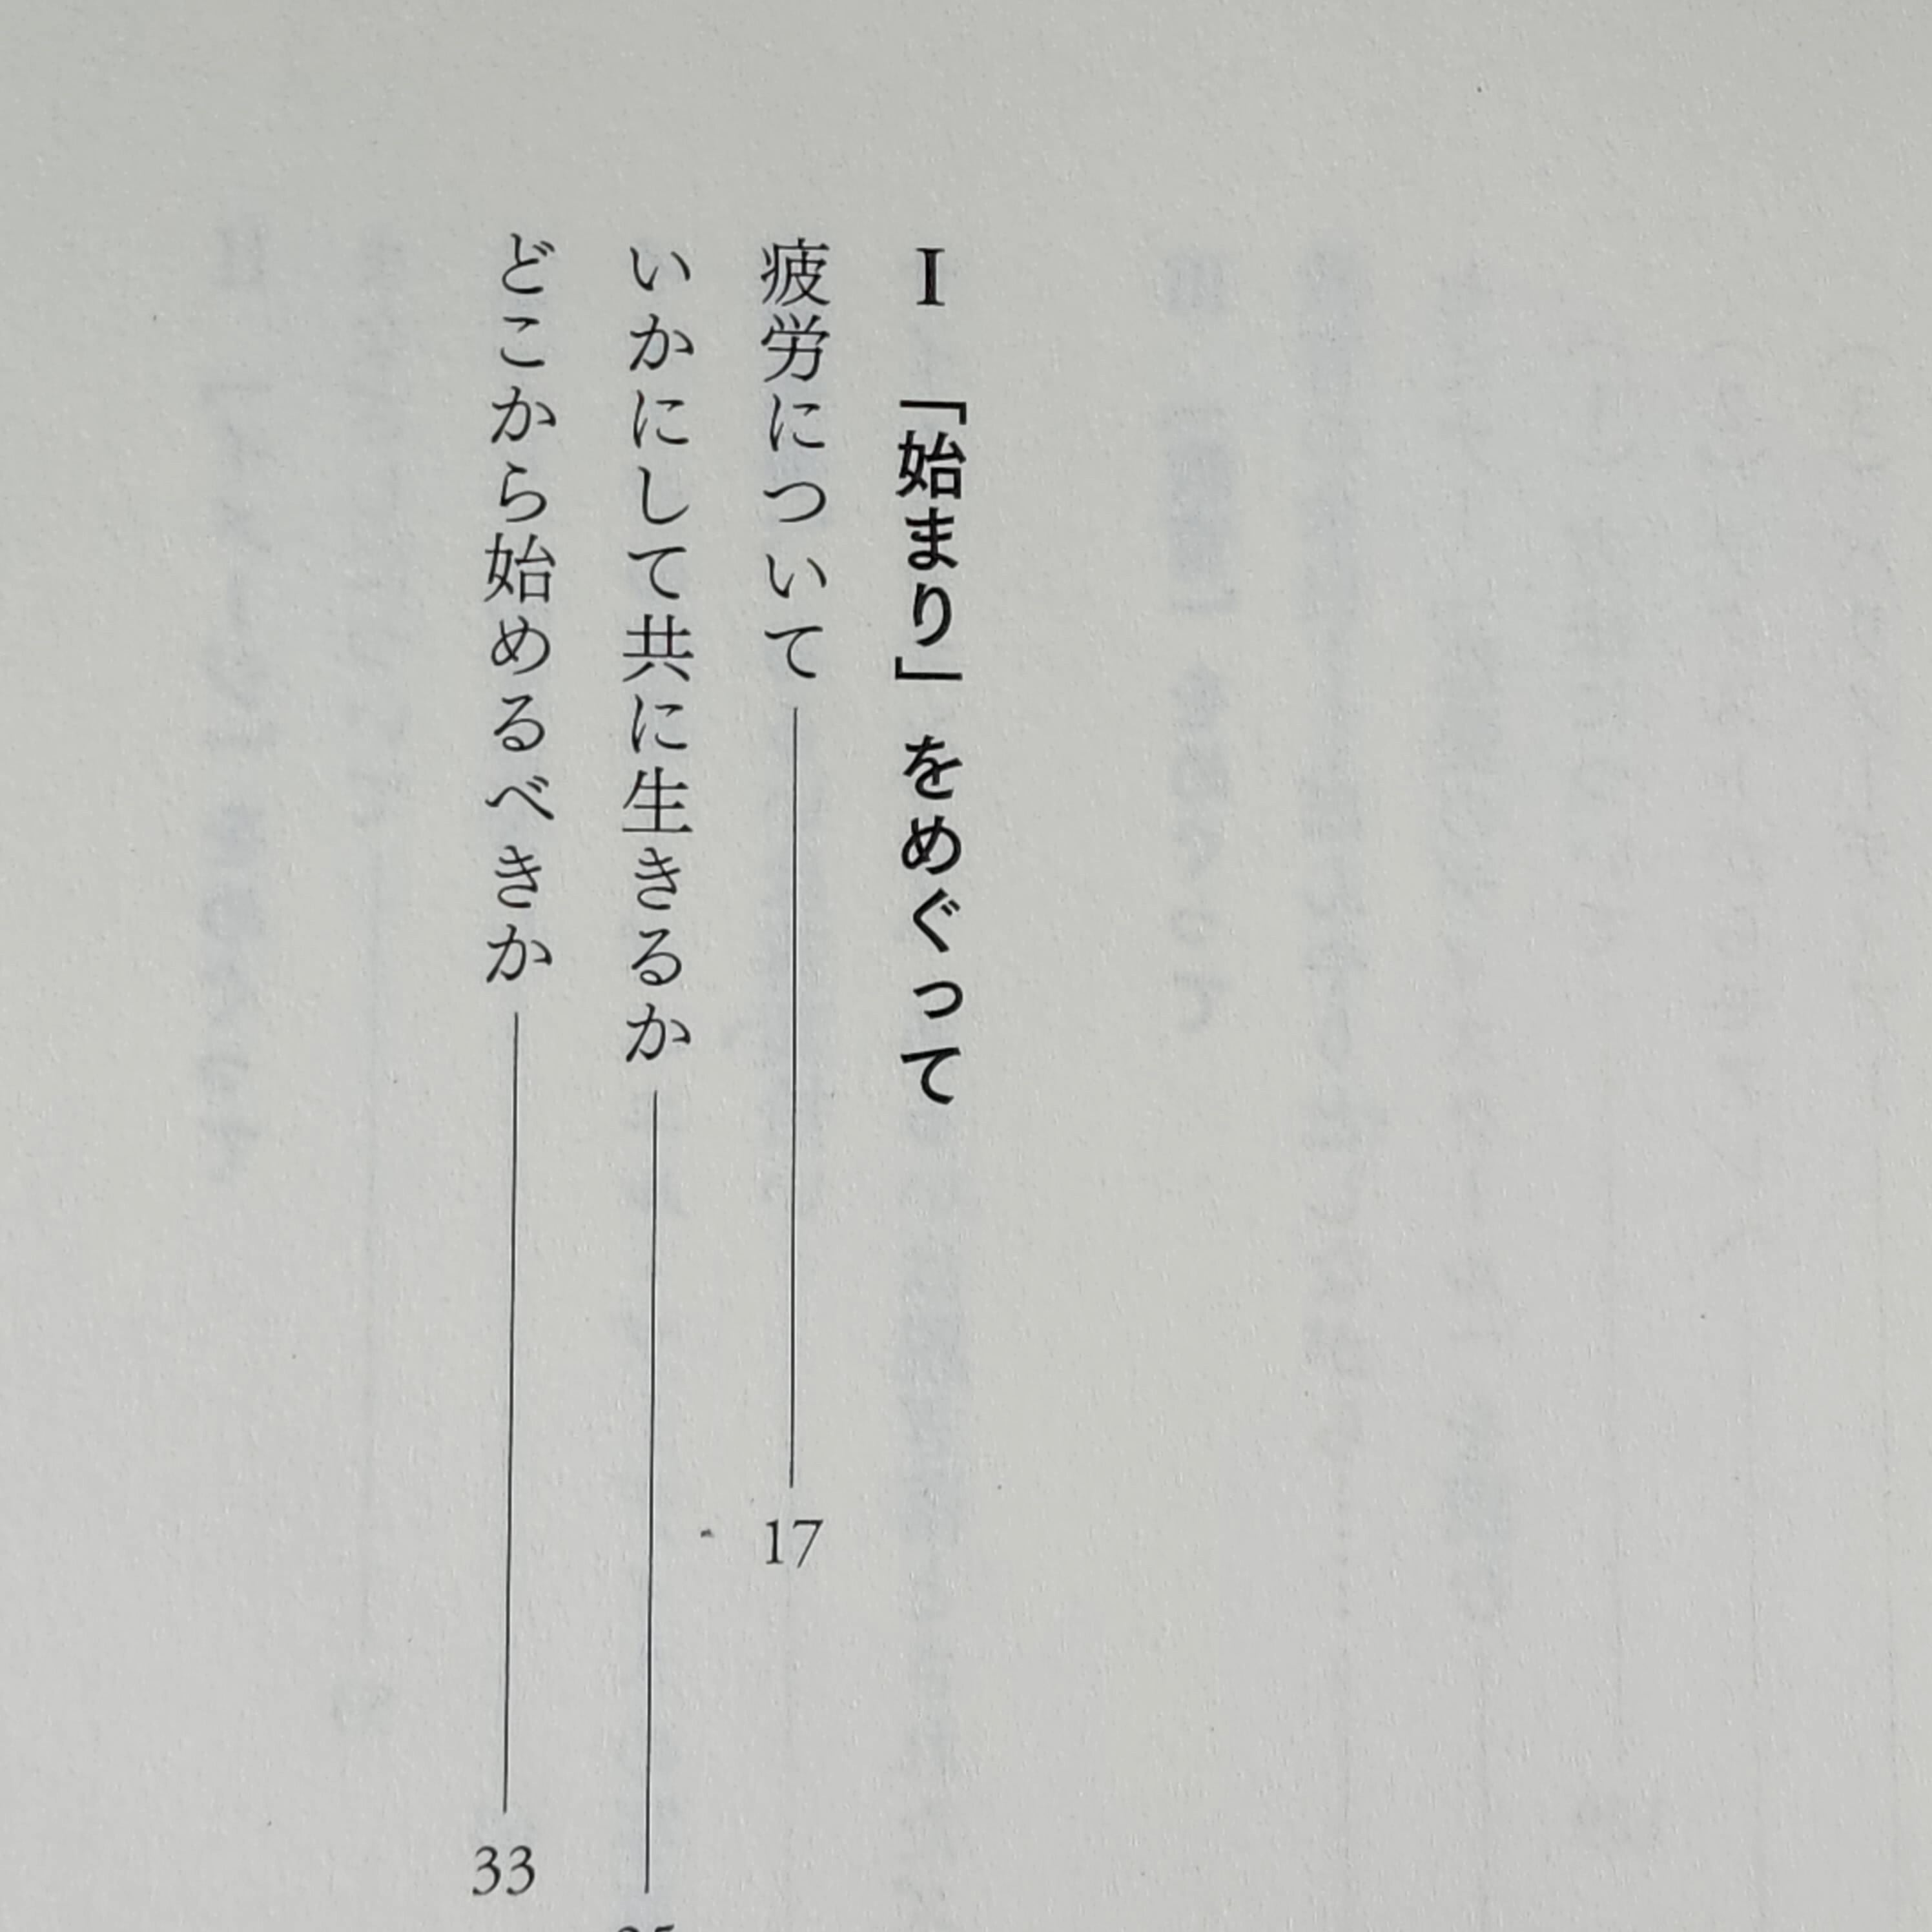 I 「始まり」をめぐって
疲労について 17
いかにして共に生きるか
どこから始めるべきか 33